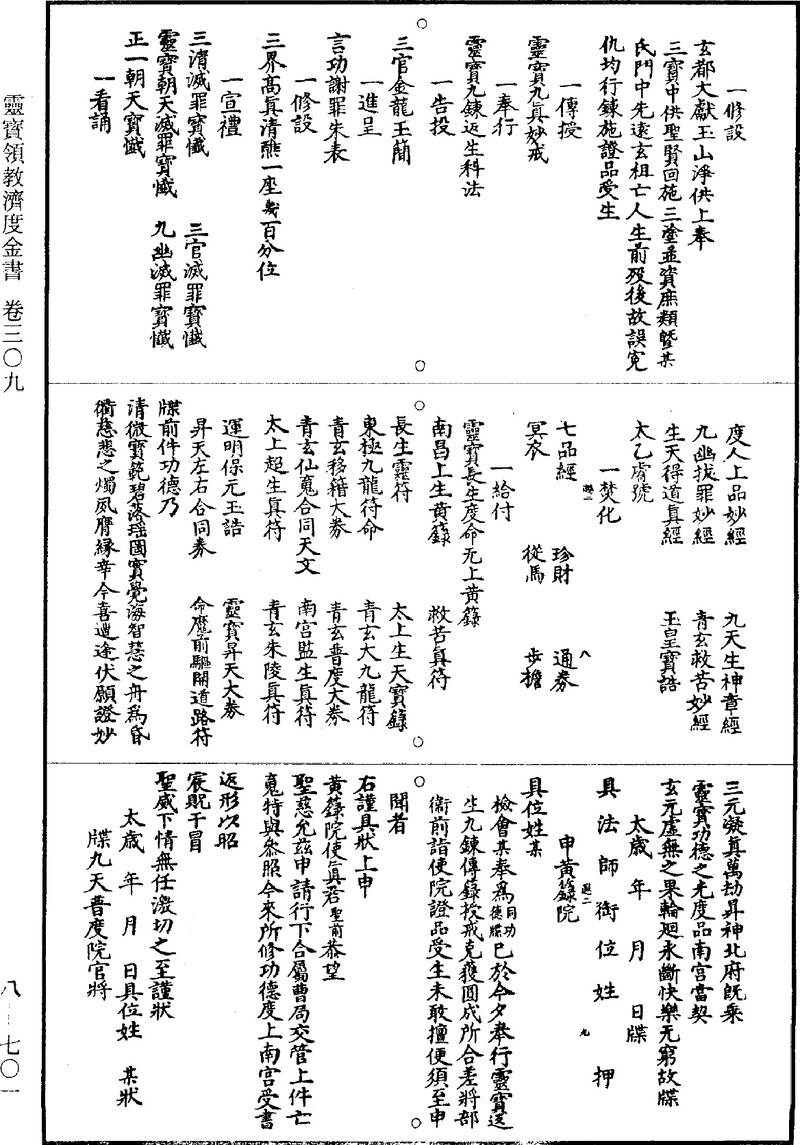 一修設
玄都大獻玉山淨供上奉
三寶中供聖賢回施三塗並資庶類暨某
氏門中先遠玄祖亡人生前歿後故誤冤
仇均行鍊施證品受生
一傳授
靈寶九真妙戒
一奉行
靈寶九鍊返生科法
一告投
三官金龍玉簡
一進呈
言功謝罪朱表
一修設
三界高真清醮一座幾百分位
一宣禮
三清滅罪寶懺 三官滅罪寶懺
靈寶朝天滅罪寶懺 九幽滅罪寶懺
正一朝天寶懺
一看誦
度人上品妙經 九天生神章經
九幽拔罪妙經 青玄救苦妙經
生天得道真經 玉皇寶誥
太乙尊號
一焚化
七品經 珍財 通券
冥衣 從馬 步擔
一給付
靈寶長生度命无上黃籙
南昌上生黃籙 救苦真符
長生靈符 太上生天寶籙
東極九龍符命 青玄大九龍符
青玄移籍大券 青玄普度大券
青玄仙䰟合同天文 南宫監生真符
太上超生真符 青玄朱陵真符
運明保元玉誥 靈寶昇天大券
昇天左右合同券 命魔前驅開道路符
牒前件功德乃
清微寶範碧落瑶圖實覺海智慧之舟為昏
衢慈悲之燭夙膺緣幸今喜遭逢伏願證妙
三元凝真萬劫昇神北府旣乘
靈寶功德之光度品南宫當契
玄元虛無之果輪迴永斷快樂无窮故牒
太歲 年 月 日牒
具法師銜位姓 押
申黃籙院
具位姓某
檢會某奉為同功德牒已於今夕奉行靈寶返
生九鍊傳籙授戒克獲圓成所合差將部
衛前詣使院證品受生未敢擅便須至申
聞者
右謹具狀上申
黃籙院使真君聖前恭望
聖慈允茲申請行下合屬曹局交管上件亡
䰟特與參照今來所修功德度上南宫受書
返形以昭
宸貺干冒
聖威下情無任激切之至謹狀
太歲 年 月 日具位姓 某狀
牒九天普度院官將
靈寶領教濟度金書 卷三〇九
八—七〇一